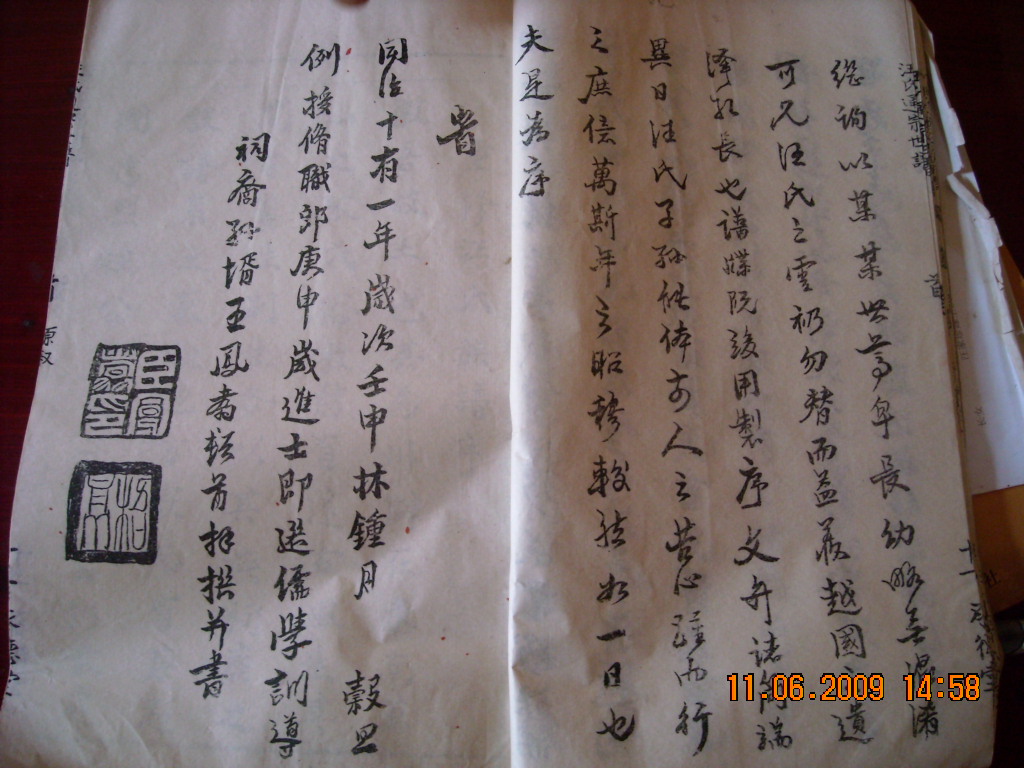 總詢以某某世等卑長幼略無混淆
可見汪氏之雲礽勿替而益崇越國之遺
澤孔長也譜牒既竣用製序文弁諸簡端
異日汪氏子孫能體前人之苦心踵而行
之庶億萬斯年之昭穆較然如一日也
夫是為序
旹
同治十有一年歲次壬申林鐘月 穀旦
例授脩職郎庚申歲進士即選儒學訓導
祠裔孫壻王鳳翥頓首拜撰并書
11.06.2009 14:58